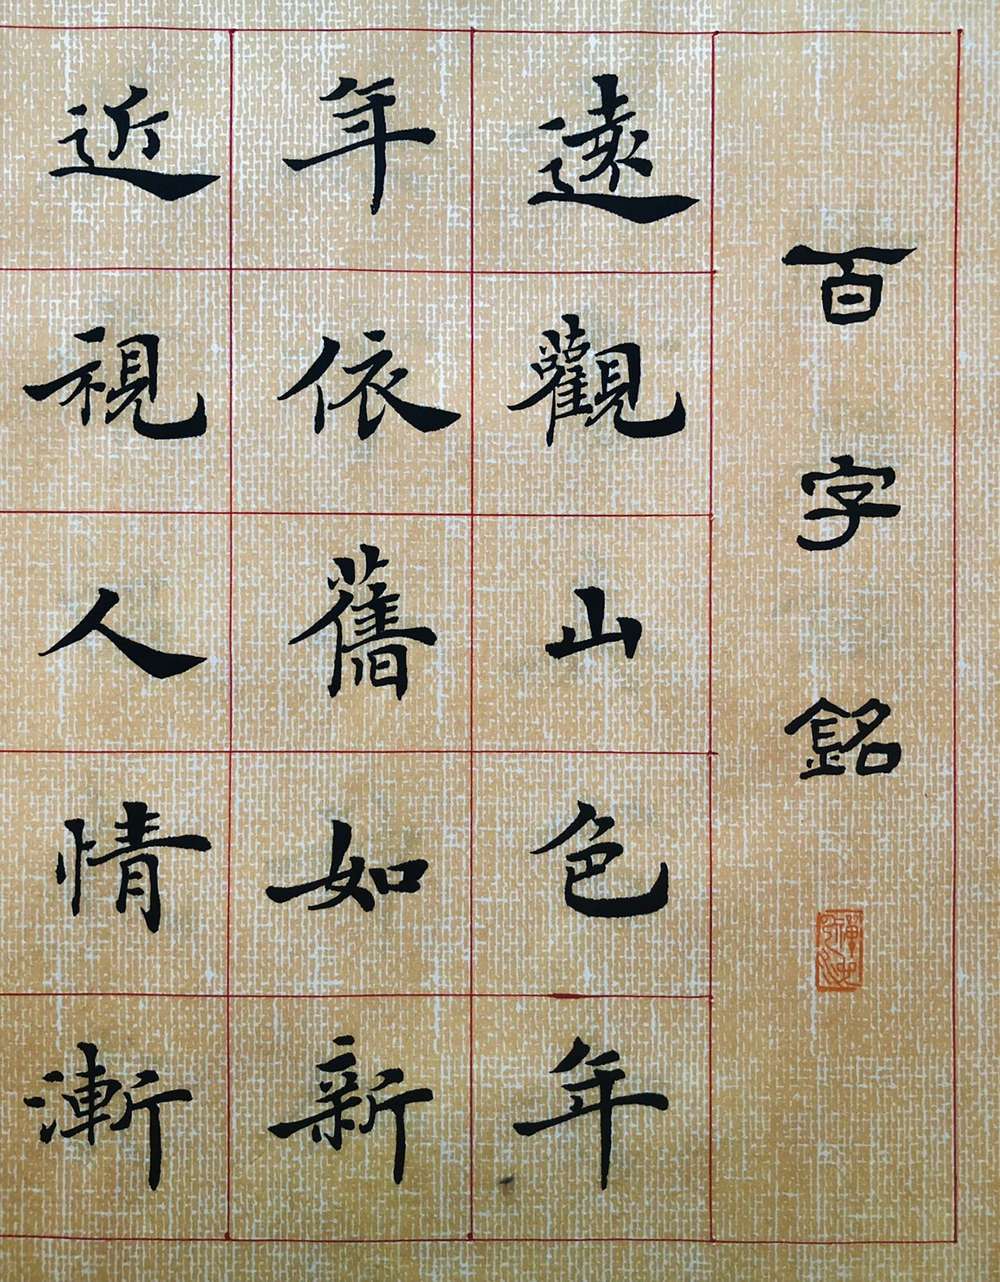 百字銘
遠觀山色年
年依舊如新
近視人情漸